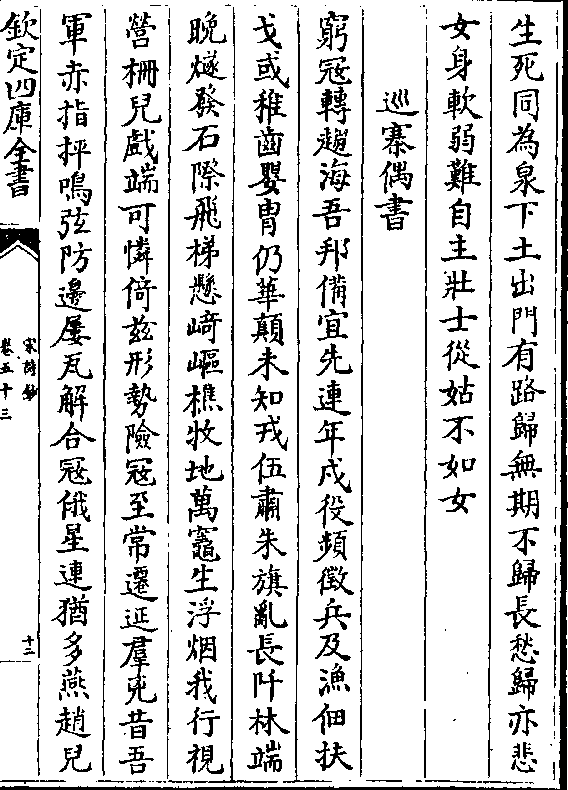 生死同為泉下土出門有路歸無期不歸長愁歸亦悲
女身軟弱難自主壯士從姑不如女
巡寨偶書
窮冦轉趨海吾邦備宜先連年戍役頻徵兵及漁佃扶
戈或稚齒嬰胄仍華顛未知戎伍肅朱旗亂長阡林端
晩燧發石際飛梯懸﨑嶇樵牧地萬竈生浮烟我行視
營柵兒戲端可憐倚兹形勢險冦至常遷延羣兇昔吾
軍赤指抨鳴弦防邊屢瓦解合冦俄星連猶多燕趙兒
欽定四庫全書
宋詩鈔
卷五十三
十二